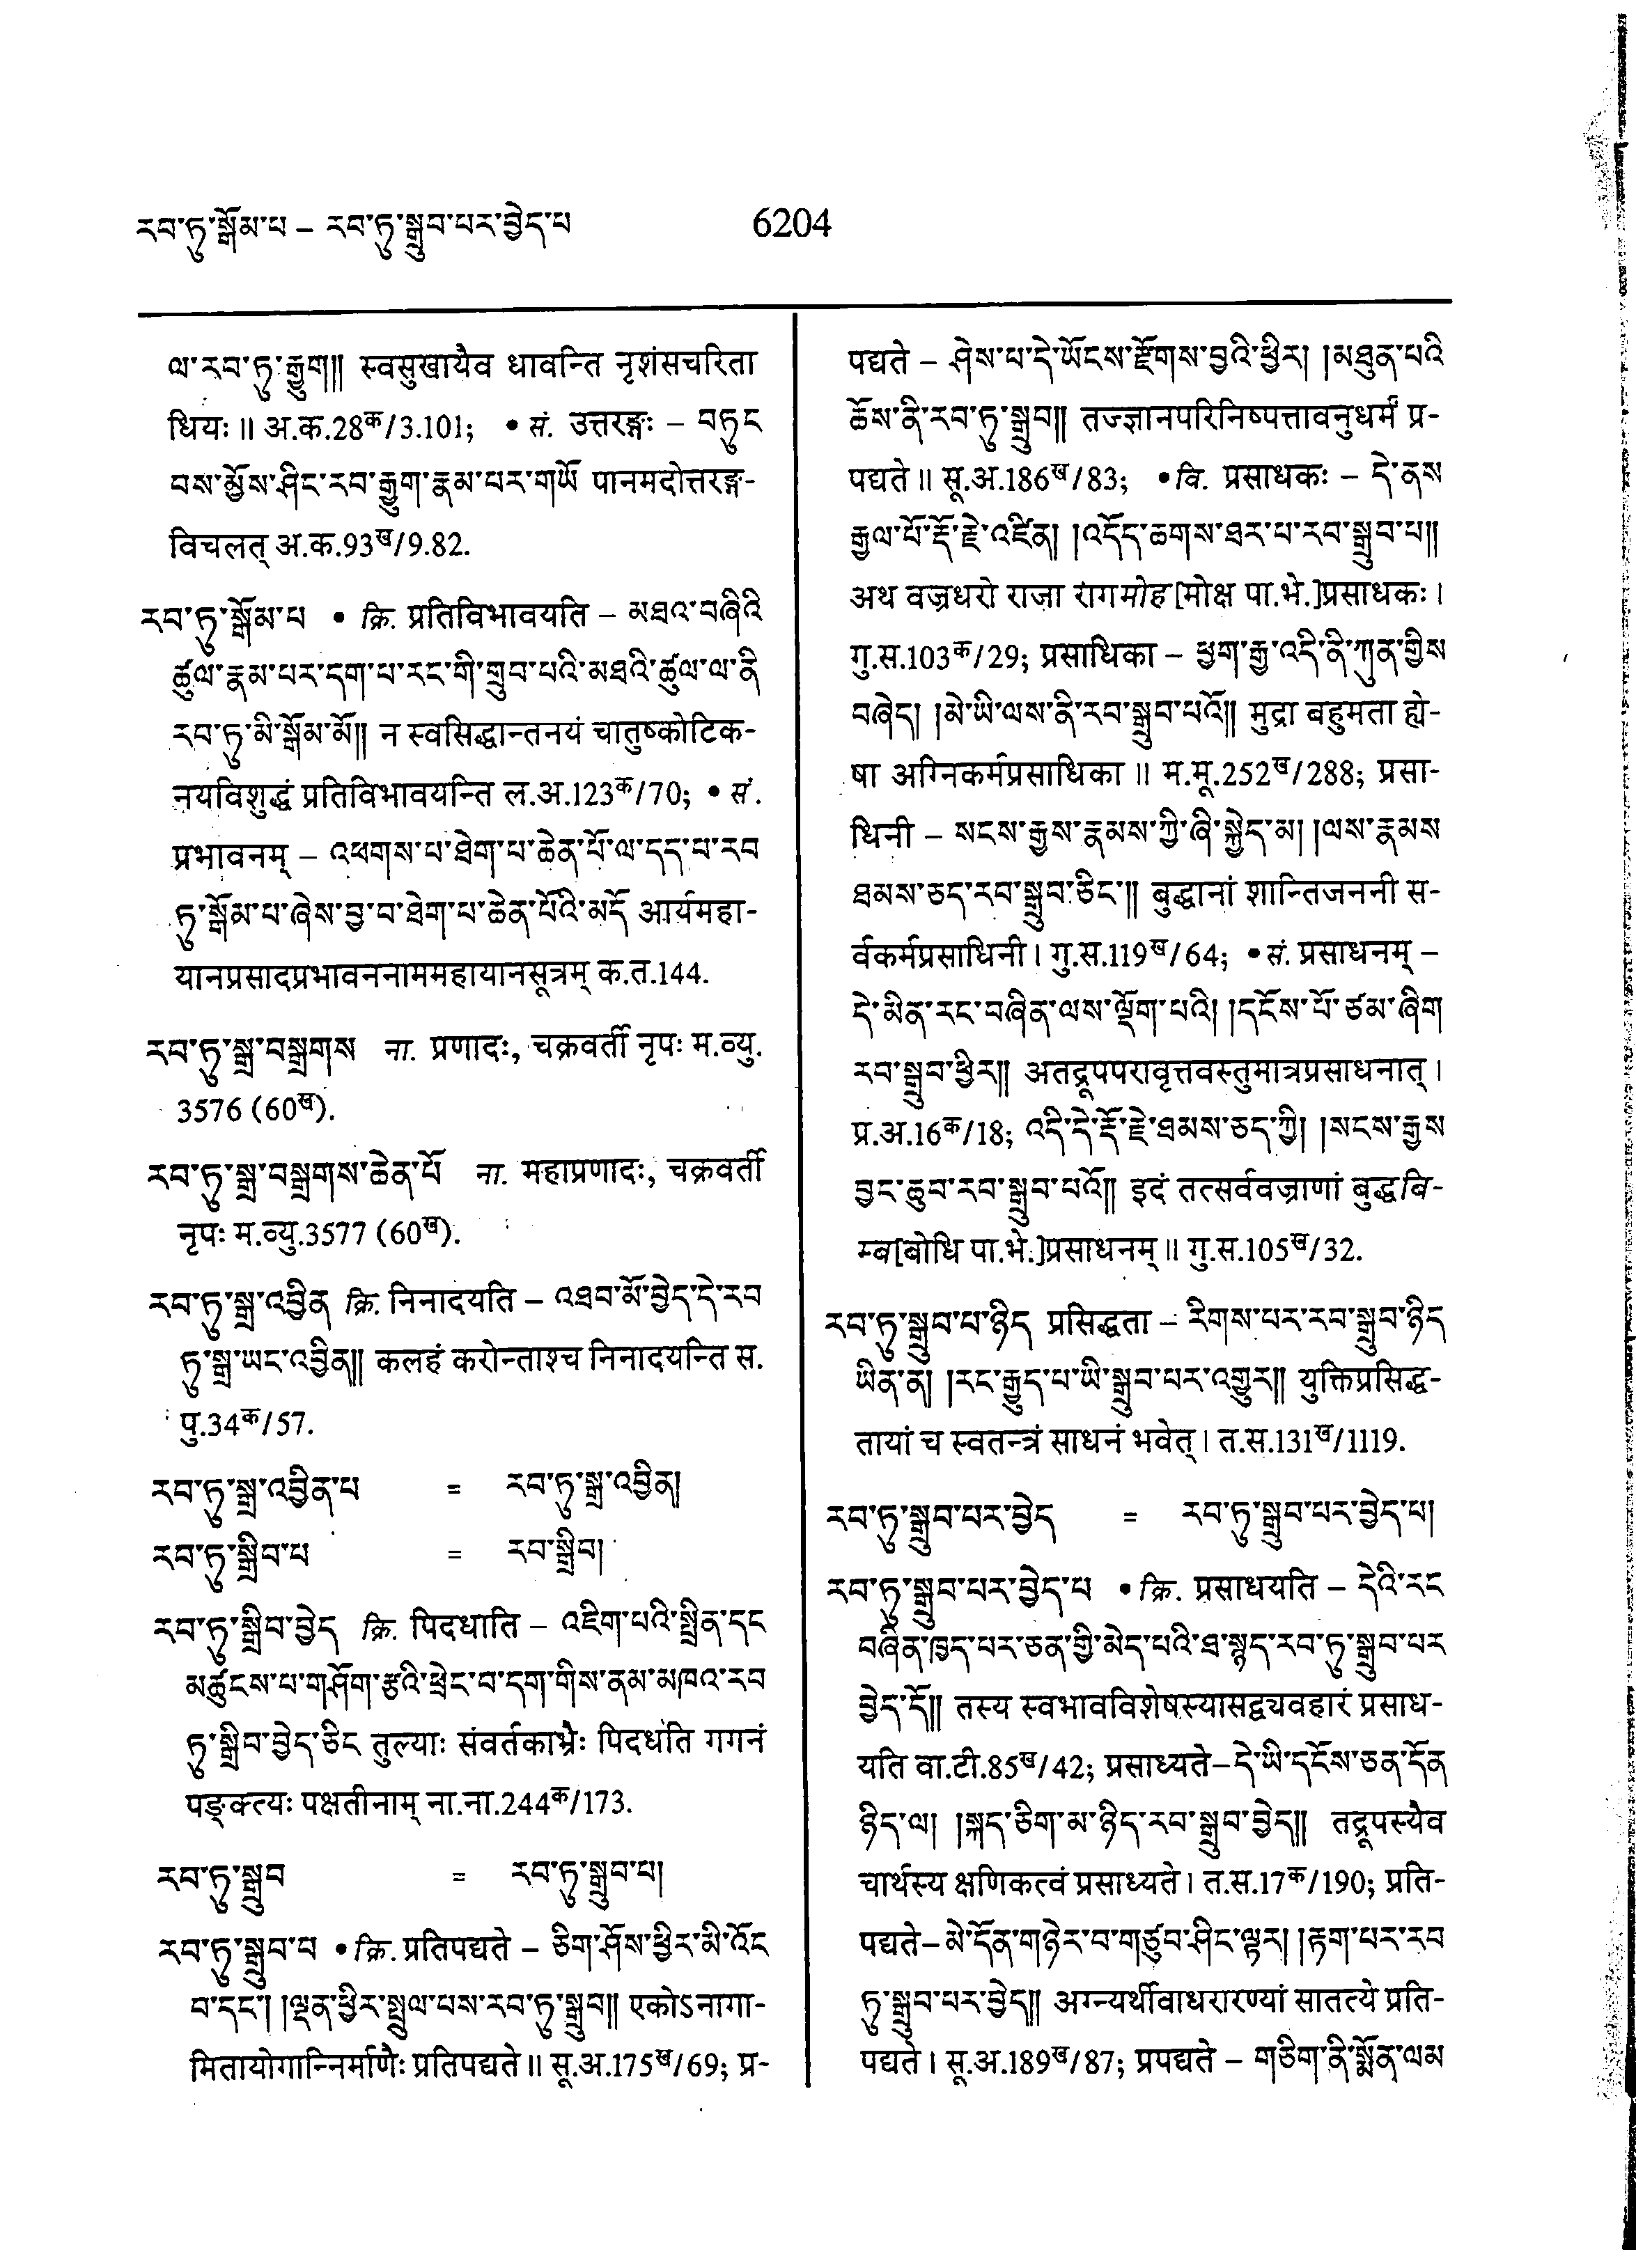 རབ་ཏུ་སྒོམ་པ – རབ་ཏུ་སྒྲུབ་པར་བྱེད་པ
6204
ལ་རབ་ཏུ་རྒྱུག༎ स्वसुखायैव धावन्ति नृशंसचरिता
धियः ॥ अ.क.28क/3.101; • सं. उत्तरङ्गः – བཏུང
བས་མྱོས་ཤིང་རབ་རྒྱུག་རྣམ་པར་གཡོ पानमदोत्तरङ्ग-
विचलत् अ.क.93ख/9.82.
རབ་ཏུ་སྒོམ་པ • क्रि. प्रतिविभावयति – མཐའ་བཞིའི
ཚུལ་རྣམ་པར་དག་པ་རང་གི་གྲུབ་པའི་མཐའི་ཚུལ་ལ་ནི
རབ་ཏུ་མི་སྒོམ་མོ༎ न स्वसिद्धान्तनयं चातुष्कोटिक-
नयविशुद्धं प्रतिविभावयन्ति ल.अ.123क/70; • सं.
प्रभावनम् – འཕགས་པ་ཐེག་པ་ཆེན་པོ་ལ་དད་པ་རབ
ཏུ་སྒོམ་པ་ཞེས་བྱ་བ་ཐེག་པ་ཆེན་པོའི་མདོ आर्यमहा-
यानप्रसादप्रभावननाममहायानसूत्रम् क.त.144.
རབ་ཏུ་སྒྲ་བསྒྲགས ना. प्रणादः, चक्रवर्ती नृपः म.व्यु.
3576 (60ख).
རབ་ཏུ་སྒྲ་བསྒྲགས་ཆེན་པོ ना. महाप्रणादः, चक्रवर्ती
नृपः म.व्यु.3577 (60ख).
རབ་ཏུ་སྒྲ་འབྱིན क्रि. निनादयति – འཐབ་མོ་བྱེད་དེ་རབ
ཏུ་སྒྲ་ཡང་འབྱིན༎ कलहं करोन्ताश्च निनादयन्ति स.
पु.34क/57.
རབ་ཏུ་སྒྲ་འབྱིན་པ = རབ་ཏུ་སྒྲ་འབྱིན།
རབ་ཏུ་སྒྲིབ་པ = རབ་སྒྲིབ།
རབ་ཏུ་སྒྲིབ་བྱེད क्रि. पिदधाति – འཇིག་པའི་སྤྲིན་དང
མཚུངས་པ་གཤོག་རྩའི་ཕྲེང་བ་དག་གིས་ནམ་མཁའ་རབ
ཏུ་སྒྲིབ་བྱེད་ཅིང तुल्याः संवर्तकाभ्रैः पिदधति गगनं
पङ्क्त्यः पक्षतीनाम् ना.ना.244क/173.
རབ་ཏུ་སྒྲུབ = རབ་ཏུ་སྒྲུབ་པ།
རབ་ཏུ་སྒྲུབ་པ • क्रि. प्रतिपद्यते – ཅིག་ཤོས་ཕྱིར་མི་འོང
བ་དང༌། །ལྡན་ཕྱིར་སྤྲུལ་པས་རབ་ཏུ་སྒྲུབ༎ एकोऽनागा-
मितायोगान्निर्माणैः प्रतिपद्यते ॥ सू.अ.175ख/69; प्र-
पद्यते – ཤེས་པ་དེ་ཡོངས་རྫོགས་བྱའི་ཕྱིར། །མཐུན་པའི
ཆོས་ནི་རབ་ཏུ་སྒྲུབ༎ तज्ज्ञानपरिनिष्पत्तावनुधर्मं प्र-
पद्यते ॥ सू.अ.186ख/83; • वि. प्रसाधकः – དེ་ནས
རྒྱལ་པོ་རྡོ་རྗེ་འཛིན། །འདོད་ཆགས་ཐར་པ་རབ་སྒྲུབ་པ༎
अथ वज्रधरो राजा रागमोह[मोक्ष पा.भे.]प्रसाधकः ।
गु.स.103क/29; प्रसाधिका – ཕྱག་རྒྱ་འདི་ནི་ཀུན་གྱིས
བཞེད། །མེ་ཡི་ལས་ནི་རབ་སྒྲུབ་པའོ༎ मुद्रा बहुमता ह्ये-
षा अग्निकर्मप्रसाधिका ॥ म.मू.252ख/288; प्रसा-
धिनी – སངས་རྒྱས་རྣམས་ཀྱི་ཞི་སྐྱེད་མ། །ལས་རྣམས
ཐམས་ཅད་རབ་སྒྲུབ་ཅིང་༎ बुद्धानां शान्तिजननी स-
र्वकर्मप्रसाधिनी । गु.स.119ख/64; • सं. प्रसाधनम् –
དེ་མིན་རང་བཞིན་ལས་ལྡོག་པའི། །དངོས་པོ་ཙམ་ཞིག
རབ་སྒྲུབ་ཕྱིར༎ अतद्रूपपरावृत्तवस्तुमात्रप्रसाधनात् ।
प्र.अ.16क/18; འདི་དེ་རྡོ་རྗེ་ཐམས་ཅད་ཀྱི། །སངས་རྒྱས
བྱང་ཆུབ་རབ་སྒྲུབ་པའོ༎ इदं तत्सर्ववज्राणां बुद्धबि-
म्ब[बोधि पा.भे.]प्रसाधनम् ॥ गु.स.105ख/32.
རབ་ཏུ་སྒྲུབ་པ་ཉིད प्रसिद्धता – རིགས་པར་རབ་སྒྲུབ་ཉིད
ཡིན་ན། །རང་རྒྱུད་པ་ཡི་སྒྲུབ་པར་འགྱུར༎ युक्तिप्रसिद्ध-
तायां च स्वतन्त्रं साधनं भवेत् । त.स.131ख/1119.
རབ་ཏུ་སྒྲུབ་པར་བྱེད = རབ་ཏུ་སྒྲུབ་པར་བྱེད་པ།
རབ་ཏུ་སྒྲུབ་པར་བྱེད་པ • क्रि. प्रसाधयति – དེའི་རང
བཞིན་ཁྱད་པར་ཅན་གྱི་མེད་པའི་ཐ་སྙད་རབ་ཏུ་སྒྲུབ་པར
བྱེད་དོ༎ तस्य स्वभावविशेषस्यासद्व्यवहारं प्रसाध-
यति वा.टी.85ख/42; प्रसाध्यते–དེ་ཡི་དངོས་ཅན་དོན
ཉིད་ལ། །སྐད་ཅིག་མ་ཉིད་རབ་སྒྲུབ་བྱེད༎ तद्रूपस्यैव
चार्थस्य क्षणिकत्वं प्रसाध्यते । त.स.17क/190; प्रति-
पद्यते–མེ་དོན་གཉེར་བ་གཙུབ་ཤིང་ལྟར། །རྟག་པར་རབ
ཏུ་སྒྲུབ་པར་བྱེད༎ अग्न्यर्थीवाधरारण्यां सातत्ये प्रति-
पद्यते । सू.अ.189ख/87; प्रपद्यते – གཅིག་ནི་སྨོན་ལམ